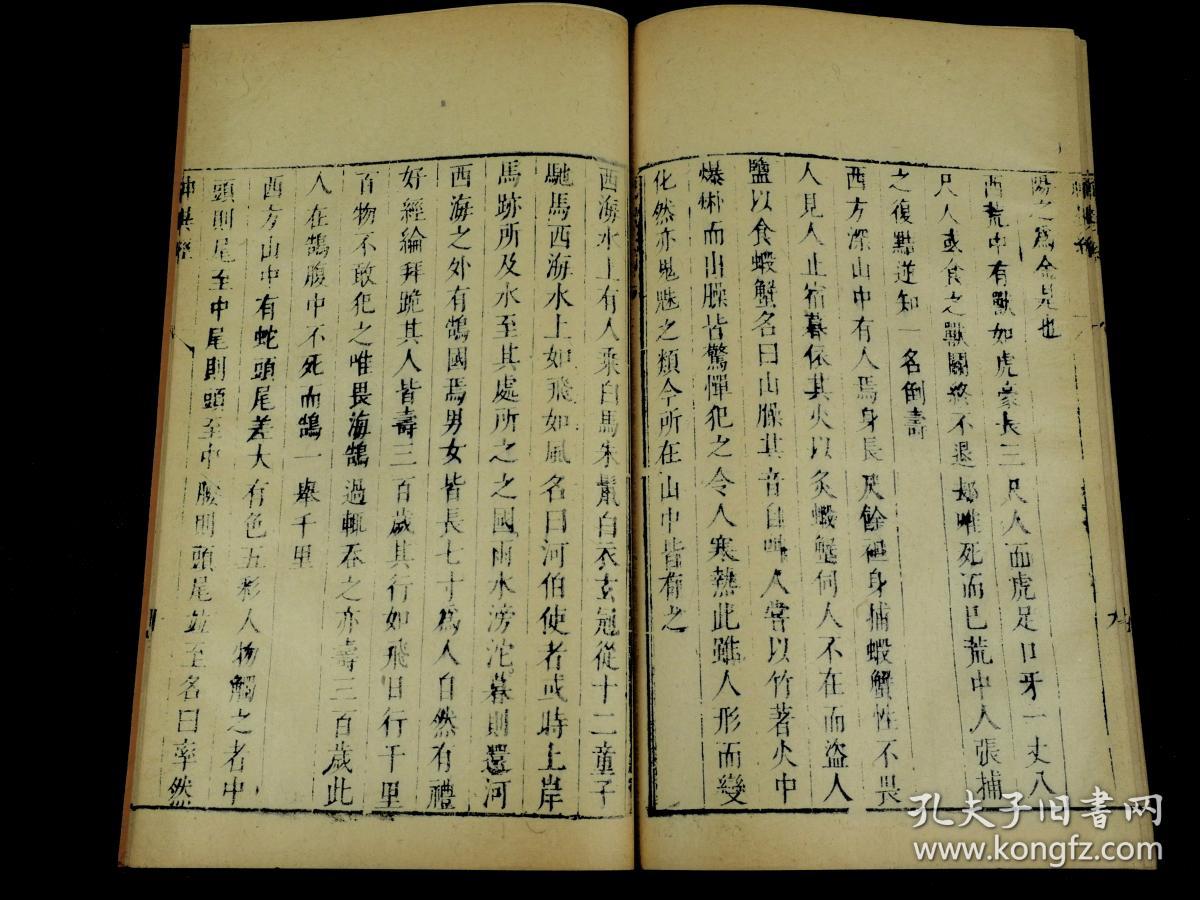 陽之爲金是也
西荒中有獸如虎豪長三尺人面虎足口牙一丈八
尺人或食之獸鬭終不退却唯死而已荒中人張捕
之復黠逆知一名倒壽
西方深山中有人焉身長尺餘袒身捕蝦蟹性不畏
人見人止宿暮依其火以炙蝦蟹伺人不在而盜人
鹽以食蝦蟹名曰山臊其音自叫人嘗以竹著火中
爆烞而山臊皆驚憚犯之令人寒熱此雖人形而變
化然亦鬼魅之類今所在山中皆有之
西海水上有人乘白馬朱鬣白衣玄冠從十二童子
馳馬西海水上如飛如風名曰河伯使者或時上岸
馬跡所及水至其處所之之國雨水滂沱暮則還河
西海之外有鵠國焉男女皆長七寸爲人自然有禮
好經綸拜跪其人皆壽三百歲其行如飛日行千里
百物不敢犯之唯畏海鵠過輒吞之亦壽三百歲此
人在鵠腹中不死而鵠一舉千里
西方山中有蛇頭尾差大有色五彩人物觸之者中
頭則尾至中尾則頭至中腰則頭尾並至名曰率然
神異經
孔夫子旧书网
www.kongfz.com